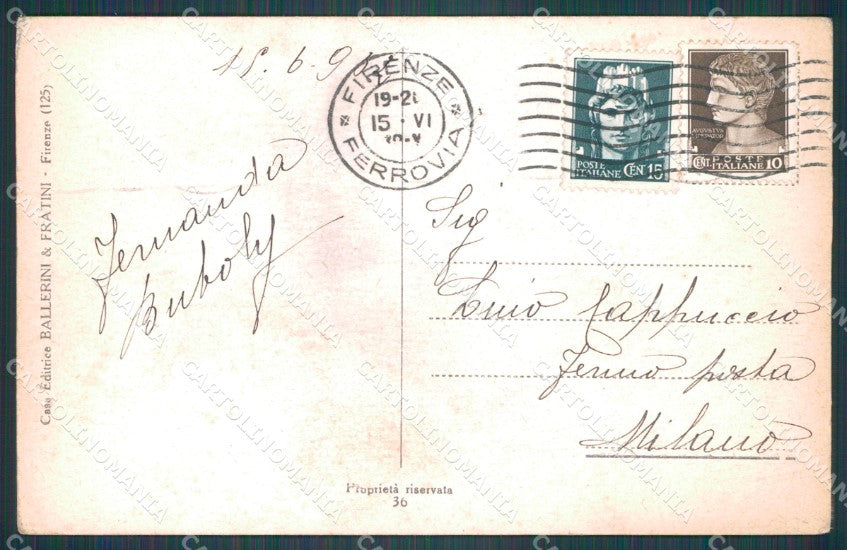 Casa Editrice BALLERINI & FRATINI - Firenze (125)
15. 6 - 9
FIRENZE
19-21
15 · VI
FERROVIA
POSTE
ITALIANE CEN 15
AVGVSTVS
IMPERATOR
POSTE
CENT. ITALIANE 10
Fernanda
Sig
Cappuccio
Fermo posta
Milano
Proprietà riservata
36
CARTOLINOMANIA